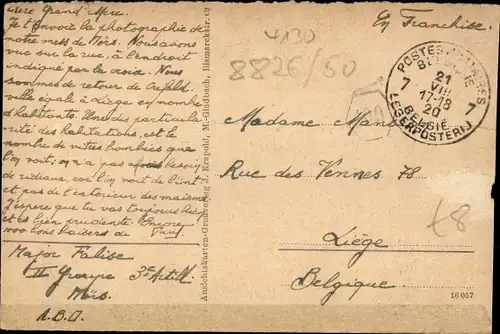 Chère Grand' Mère
Je t'envoie la photographie de
notre mess de Mörs. Nous avons
vue sur la rue, à l'endroit
indiqué par la croix. Nous
sommes de retour de Crefeld
ville égale à Liège en nombre
d'habitants. L'une des particula
rités des habitations, est le
nombre de vitres bombées que
l'on voit, on n'a pas besoin
de rideaux car l'on voit de l'int
et pas de l'extérieur des maisons
J'espère que tu vas toujours bien
et es bien prudente. Encore
bons baisers de
Major Falise
II Groupe 3e Artill
Mörs
A.B.O.
Ansichtskarten-Großverlag J. Krapohl, M.-Gladbach, Bismarckstr. 69
4130
8826/50
En Franchise.
POSTES MILITAIRES
BELGIQUE
21
VIII
17-18
20
7 7
BELGIË
LEGERPOSTERIJ
Madame
Rue des Vennes 78
£8
Liège
Belgique
16057